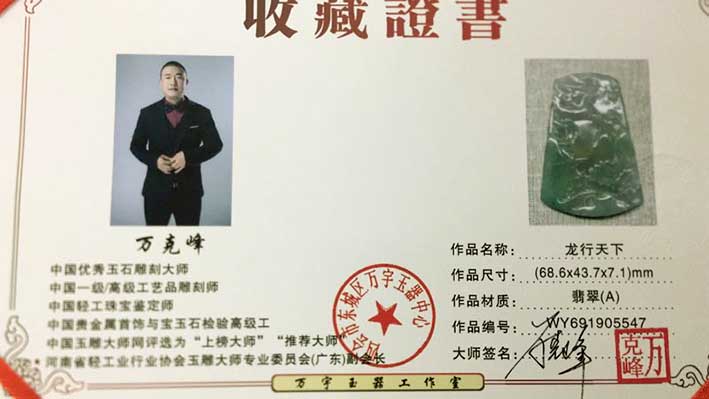 收藏證書
万克峰
中国优秀玉石雕刻大师
中国一级/高级工艺品雕刻师
中国轻工珠宝鉴定师
中国贵金属首饰与宝玉石检验高级工
中国玉雕大师网评选为“上榜大师”“推荐大师”
河南省轻工业行业协会玉雕大师专业委员会(广东)副会长
四会市东城区万宇玉器中心
作品名称: 龙行天下
作品尺寸: (68.6x43.7x7.1)mm
作品材质: 翡翠(A)
作品编号: WY691905547
大师签名:
万克峰
万宇玉器工作室